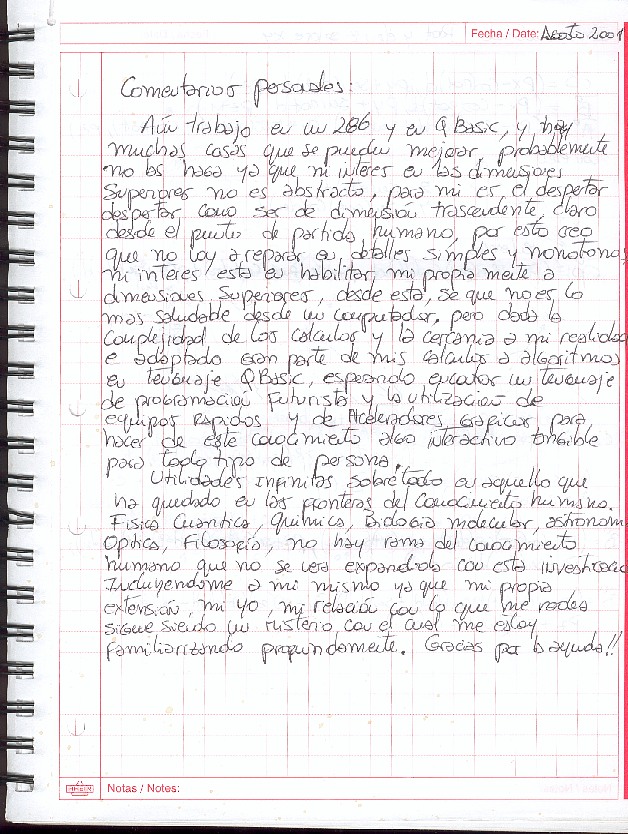 Fecha / Date: Agosto 2001
Comentarios pesados:
Aún trabajo en un 286 y en QBasic, y hay
muchas cosas que se pueden mejorar, probablemente
no las haga ya que mi interes en las dimensiones
Superiores no es abstracto, para mi es el despertar
despertar como ser de dimension trascendente, claro
desde el punto de partida humano, por esto creo
que no voy a reparar en detalles simples y monotonos
mi interes esta en habilitar mi propia mente a
dimensiones Superiores, desde esta, se que no es lo
mas saludable desde un computador, pero dada la
complejidad de los calculos y la cercania a mi realidad
e adaptado gran parte de mis calculos a algoritmos
en lenguaje QBasic, esperando encontrar un lenguaje
de programacion Futurista y la utilizacion de
equipos Rapidos y de Aceleradores Graficos para
hacer de este conocimiento algo interactivo tangible
para todo tipo de persona.
Utilidades Infinitas sobretodo en aquello que
ha quedado en las fronteras del conocimiento humano.
Fisica Cuantica, Quimica, Biologia molecular, astronom
Optica, Filosofia, no hay rama del conocimiento
humano que no se vera expandida con esta investigacio
Incluyendome a mi mismo ya que mi propia
extensión, mi yo, mi relación con lo que me rodea
sigue siendo un misterio con el cual me estoy
familiarizando profundamente. Gracias por la ayuda!!
Notas / Notes: